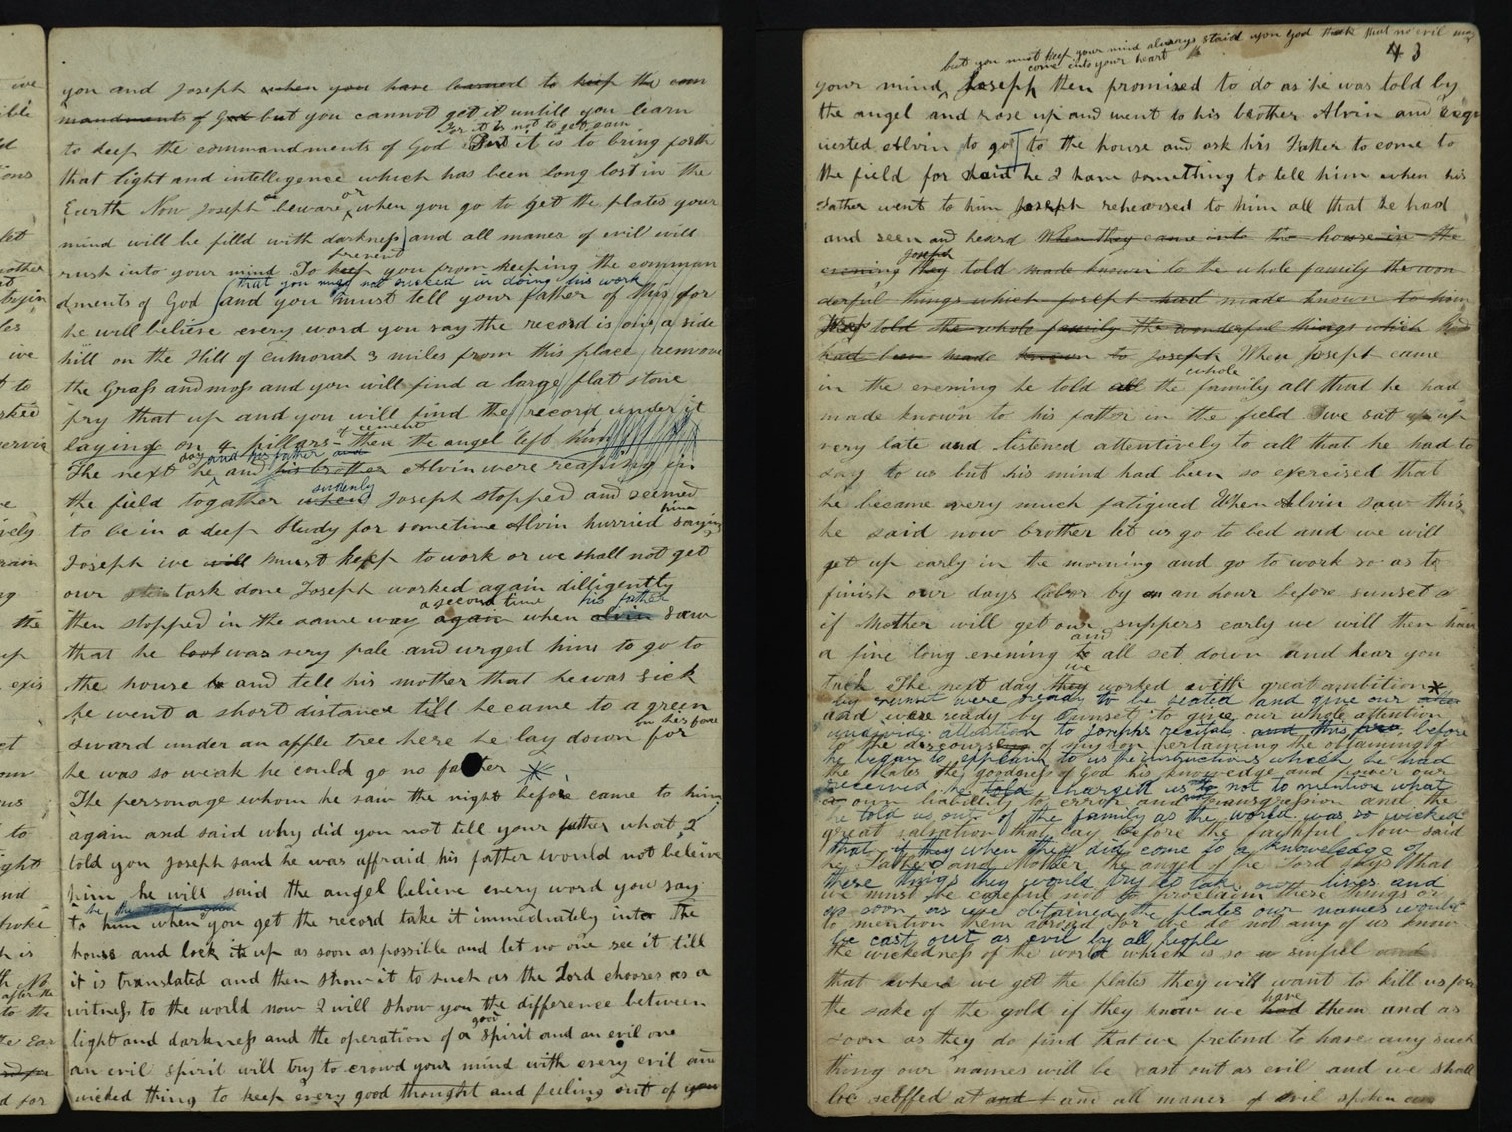 you and Joseph when you have learned to keep the com
mandments of God but you cannot get it untill you learn
For it is not to get gain
to keep the commandments of God But it is to bring forth
that light and intelligence which has been long lost in the
Earth Now Joseph beware or when you go to get the plates your
mind will be filld with darkness and all maner of evil will
prevent
rush into your mind To keep you from keeping the comman
that you may not succed in doing his work
dments of God and you must tell your father of this for
he will believe every word you say the record is on a side
hill on the Hill of Cumorah 3 miles from this place remove
the Grass and moss and you will find a large flat stone
pry that up and you will find the record under it
of cement
laying on 4 pillars then the angel left him
day and his father and
The next he and his brother Alvin were reaping in
suddenly
the field togather when Joseph stopped and seemed
to be in a deep study for sometime Alvin hurried him saying
Joseph we will must keep to work or we shall not get
our task done Joseph worked again dilligently
a second time his father
then stopped in the same way again when alvin saw
that he look was very pale and urged him to go to
the house to and tell his mother that he was sick
he went a short distance till he came to a green
on his face
sward under an apple tree here he lay down for
he was so weak he could go no farther *
The personage whom he saw the night before came to him
again and said why did you not tell your father what I
told you Joseph said he was affraid his father would not beleive
him he will said the angel believe every word you say
to him when you get the record take it immediately into the
house and lock it up as soon as possible and let no one see it till
it is translated and then show it to such as the Lord chooses as a
witness to the world now I will show you the difference between
good
light and darkness and the operation of a spirit and an evil one
an evil spirit will try to crowd your mind with every evil and
wicked thing to keep every good thought and feeling out of your
43
but you must keep your mind always staid upon God that no evil may
come into your heart
your mind Joseph then promised to do as he was told by
the angel and rose up and went to his brother Alvin and requ
uested Alvin to go to the house and ask his Father to come to
the field for said he I have something to tell him when his
Father went to him Joseph rehearsed to him all that he had
and seen and heard When they came into the house in the
Joseph
evening they told made known to the whole family the won
derful things which joseph had made known to him
Josep told the whole family the wonderful things which
had been made known to Joseph When Joseph came
whole
in the evening he told all the family all that he had
made known to his father in the field we sat up up
very late and listened attentively to all that he had to
say to us but his mind had been so exercised that
he became very much fatigued When Alvin saw this
he said now brother let us go to bed and we will
get up early in the morning and go to work so as to
finish our days labor by an hour before sunset &
if Mother will get our suppers early we will then have
and
a fine long evening to all set down and hear you
we
talk The next day they worked with great ambition *
by sunset were ready to be seated and give our
and were ready by Sunset to give our whole attention
undivided attention to josephs recital before
to the discourse of my son pertaining the obtaining of
he began to explain to us the instructions which he had
the plates the goodness of God his knowledge and power our
received he told charged us to not to mention what
own liability to error and transgression and the
he told us out of the family as the world was so wicked
great salvation that lay before the faithful Now said
that if they when they did come to a knowledge of
he Father and Mother the angel of the Lord says that
these things they would try to take our lives and
we must be careful not to proclaim these things or
as soon as we obtained the plates our names would
to mention them abroad For we do not any of us know
be cast out as evil by all people
the wickedness of the world which is so sinful and
that when we get the plates they will want to kill us for
have
the sake of the gold if they know we had them and as
soon as they do find that we pretend to have any such
thing our names will be cast out as evil and we shall
be scoffed at and all maner of evil spoken